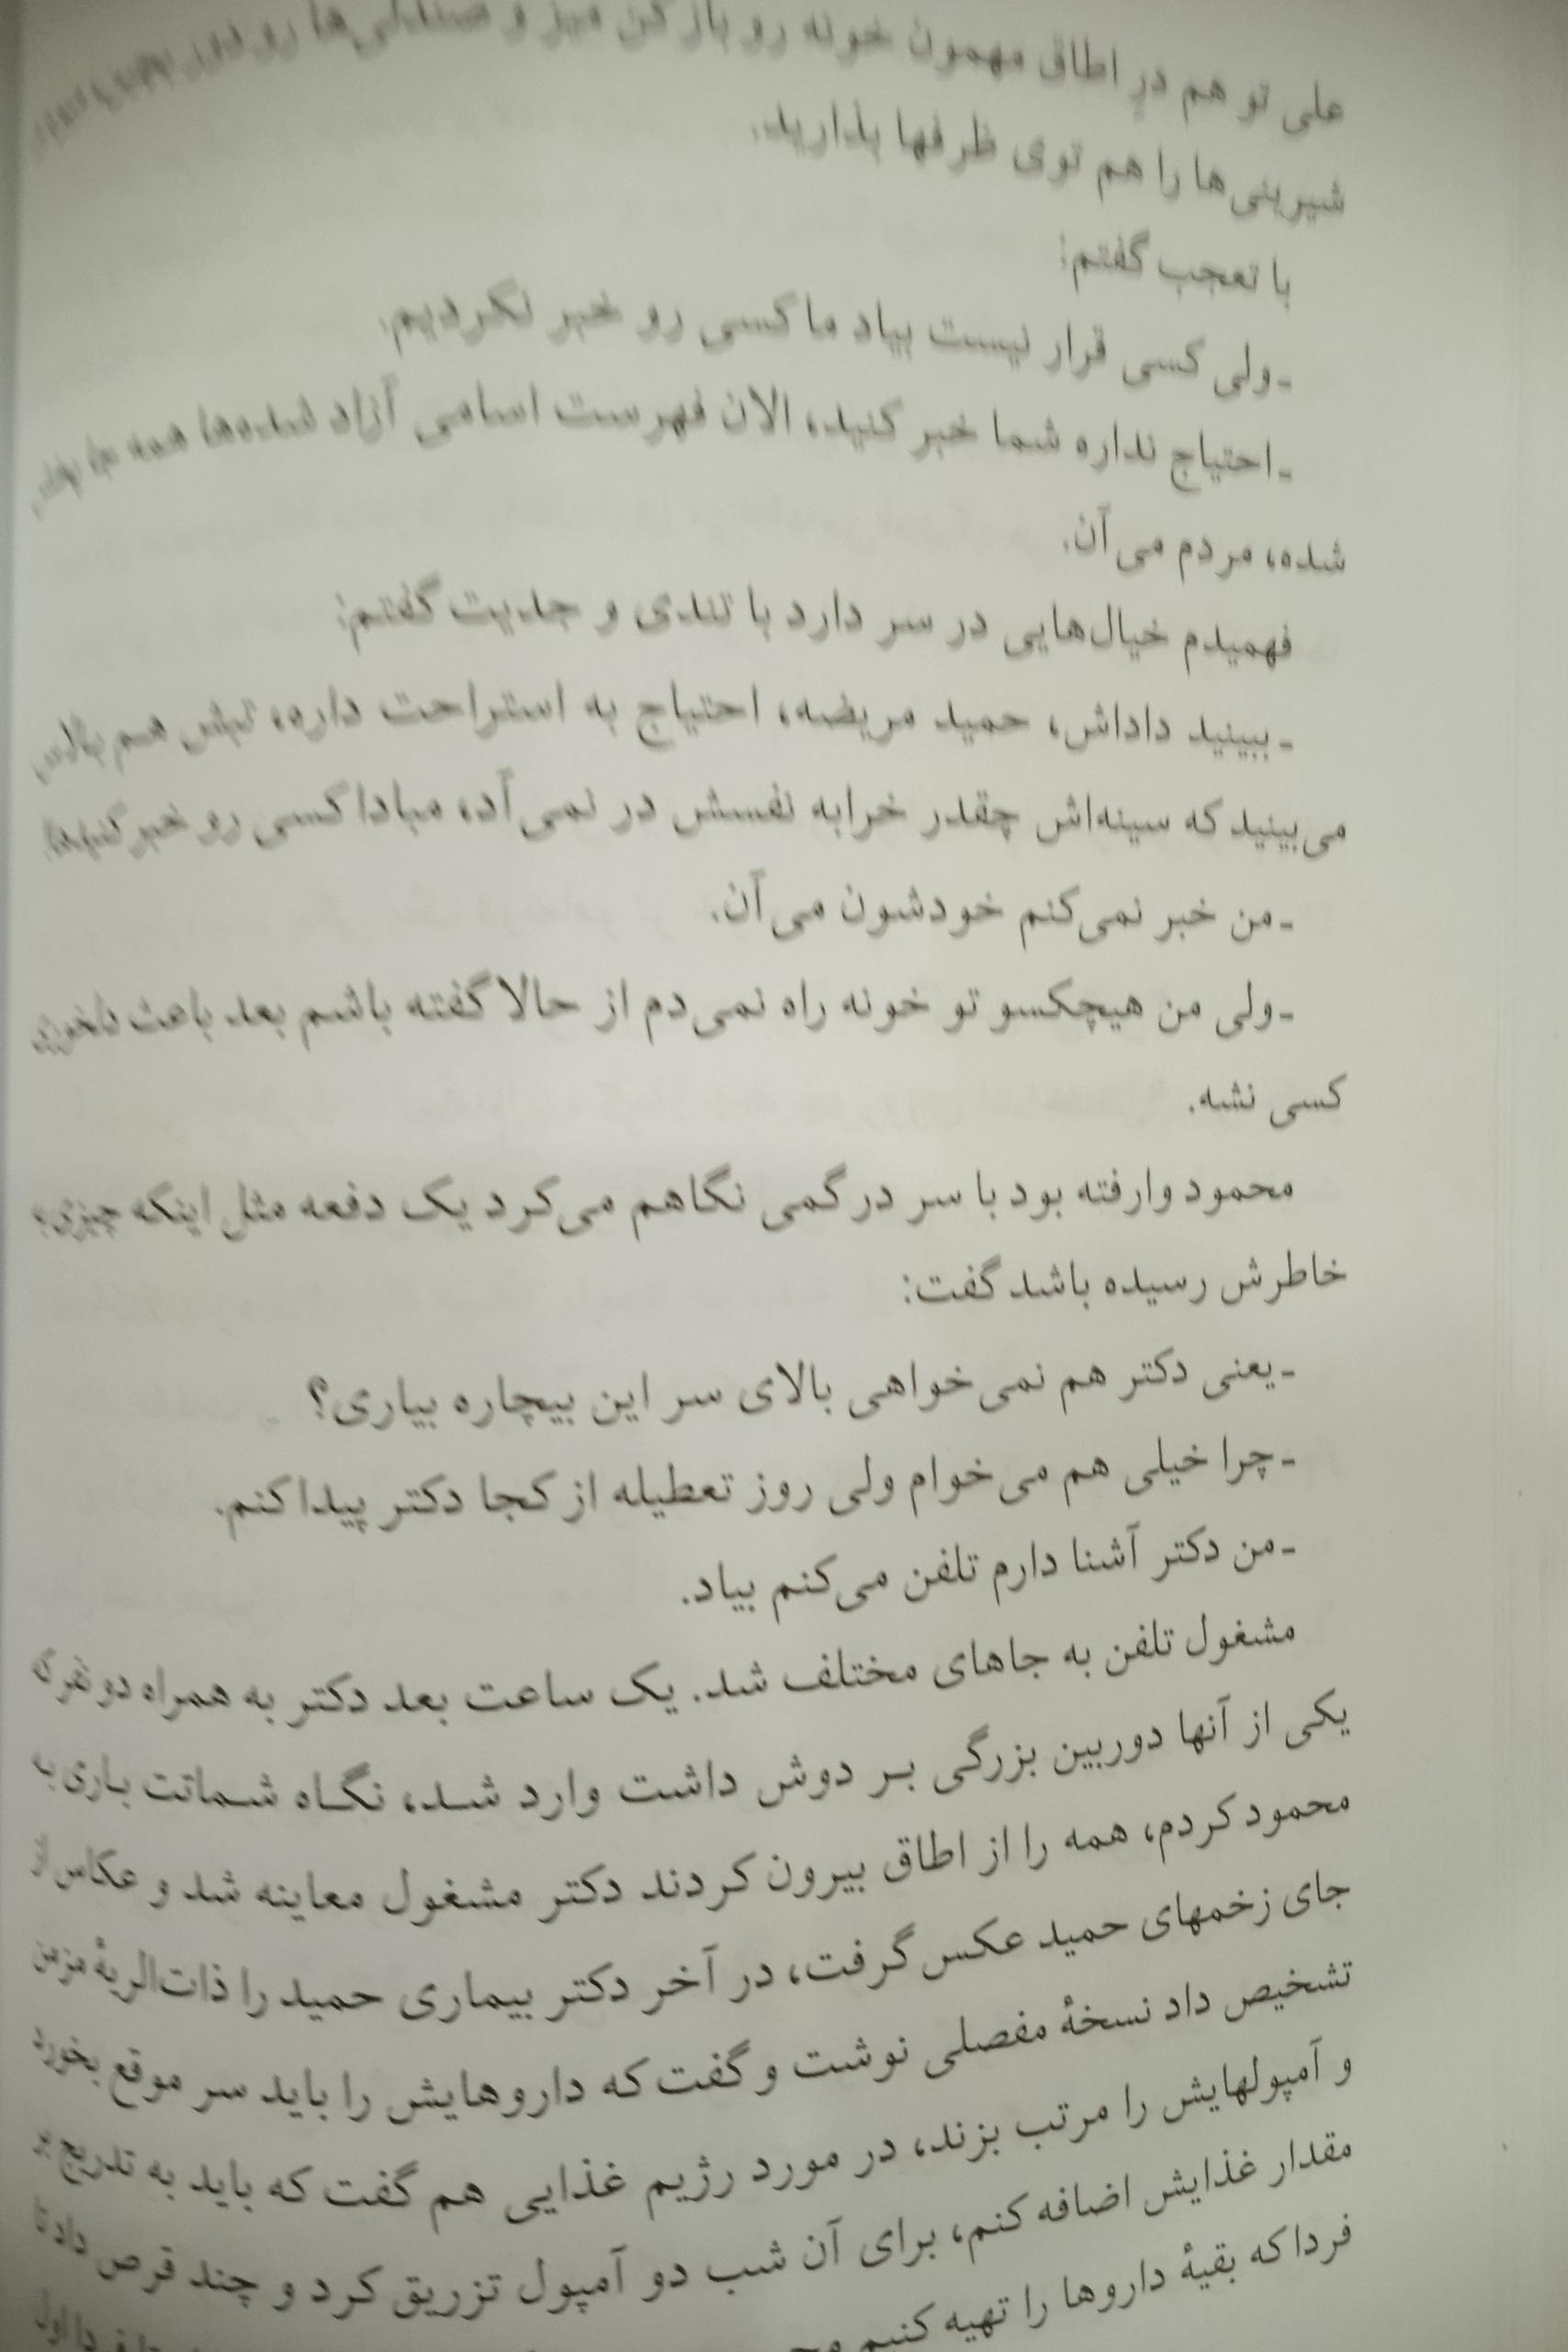 علی تو هم درِ اطاق مهمون خونه رو باز کن میز و صندلی‌ها رو دور
شیرینی‌ها را هم توی ظرفها بذارید.
با تعجب گفتم:
ـ ولی کسی قرار نیست بیاد ما کسی رو خبر نکردیم.
ـ احتیاج نداره شما خبر کنید، الان فهرست اسامی آزاد شده‌ها همه جا پخش
شده، مردم می‌آن.
فهمیدم خیال‌هایی در سر دارد با تندی و جدیت گفتم:
ـ ببینید داداش، حمید مریضه، احتیاج به استراحت داره، تبش هم بالاس
می‌بینید که سینه‌اش چقدر خرابه نفسش در نمی‌آد، مبادا کسی رو خبر کنیدها.
ـ من خبر نمی‌کنم خودشون می‌آن.
ـ ولی من هیچکسو تو خونه راه نمی‌دم از حالا گفته باشم بعد باعث دلخوری
کسی نشه.
محمود وارفته بود با سر در گمی نگاهم می‌کرد یک دفعه مثل اینکه چیزی به
خاطرش رسیده باشد گفت:
ـ یعنی دکتر هم نمی‌خواهی بالای سر این بیچاره بیاری؟
ـ چرا خیلی هم می‌خوام ولی روز تعطیله از کجا دکتر پیدا کنم.
ـ من دکتر آشنا دارم تلفن می‌کنم بیاد.
مشغول تلفن به جاهای مختلف شد. یک ساعت بعد دکتر به همراه دو نفر که
یکی از آنها دوربین بزرگی بر دوش داشت وارد شد، نگاه شماتت باری به
محمود کردم، همه را از اطاق بیرون کردند دکتر مشغول معاینه شد و عکاس از
جای زخمهای حمید عکس گرفت، در آخر دکتر بیماری حمید را ذات‌الریهٔ مزمن
تشخیص داد نسخهٔ مفصلی نوشت و گفت که داروهایش را باید سر موقع بخورد
و آمپولهایش را مرتب بزند، در مورد رژیم غذایی هم گفت که باید به تدریج بر
مقدار غذایش اضافه کنم، برای آن شب دو آمپول تزریق کرد و چند قرص داد تا
فردا که بقیهٔ داروها را تهیه کنیم